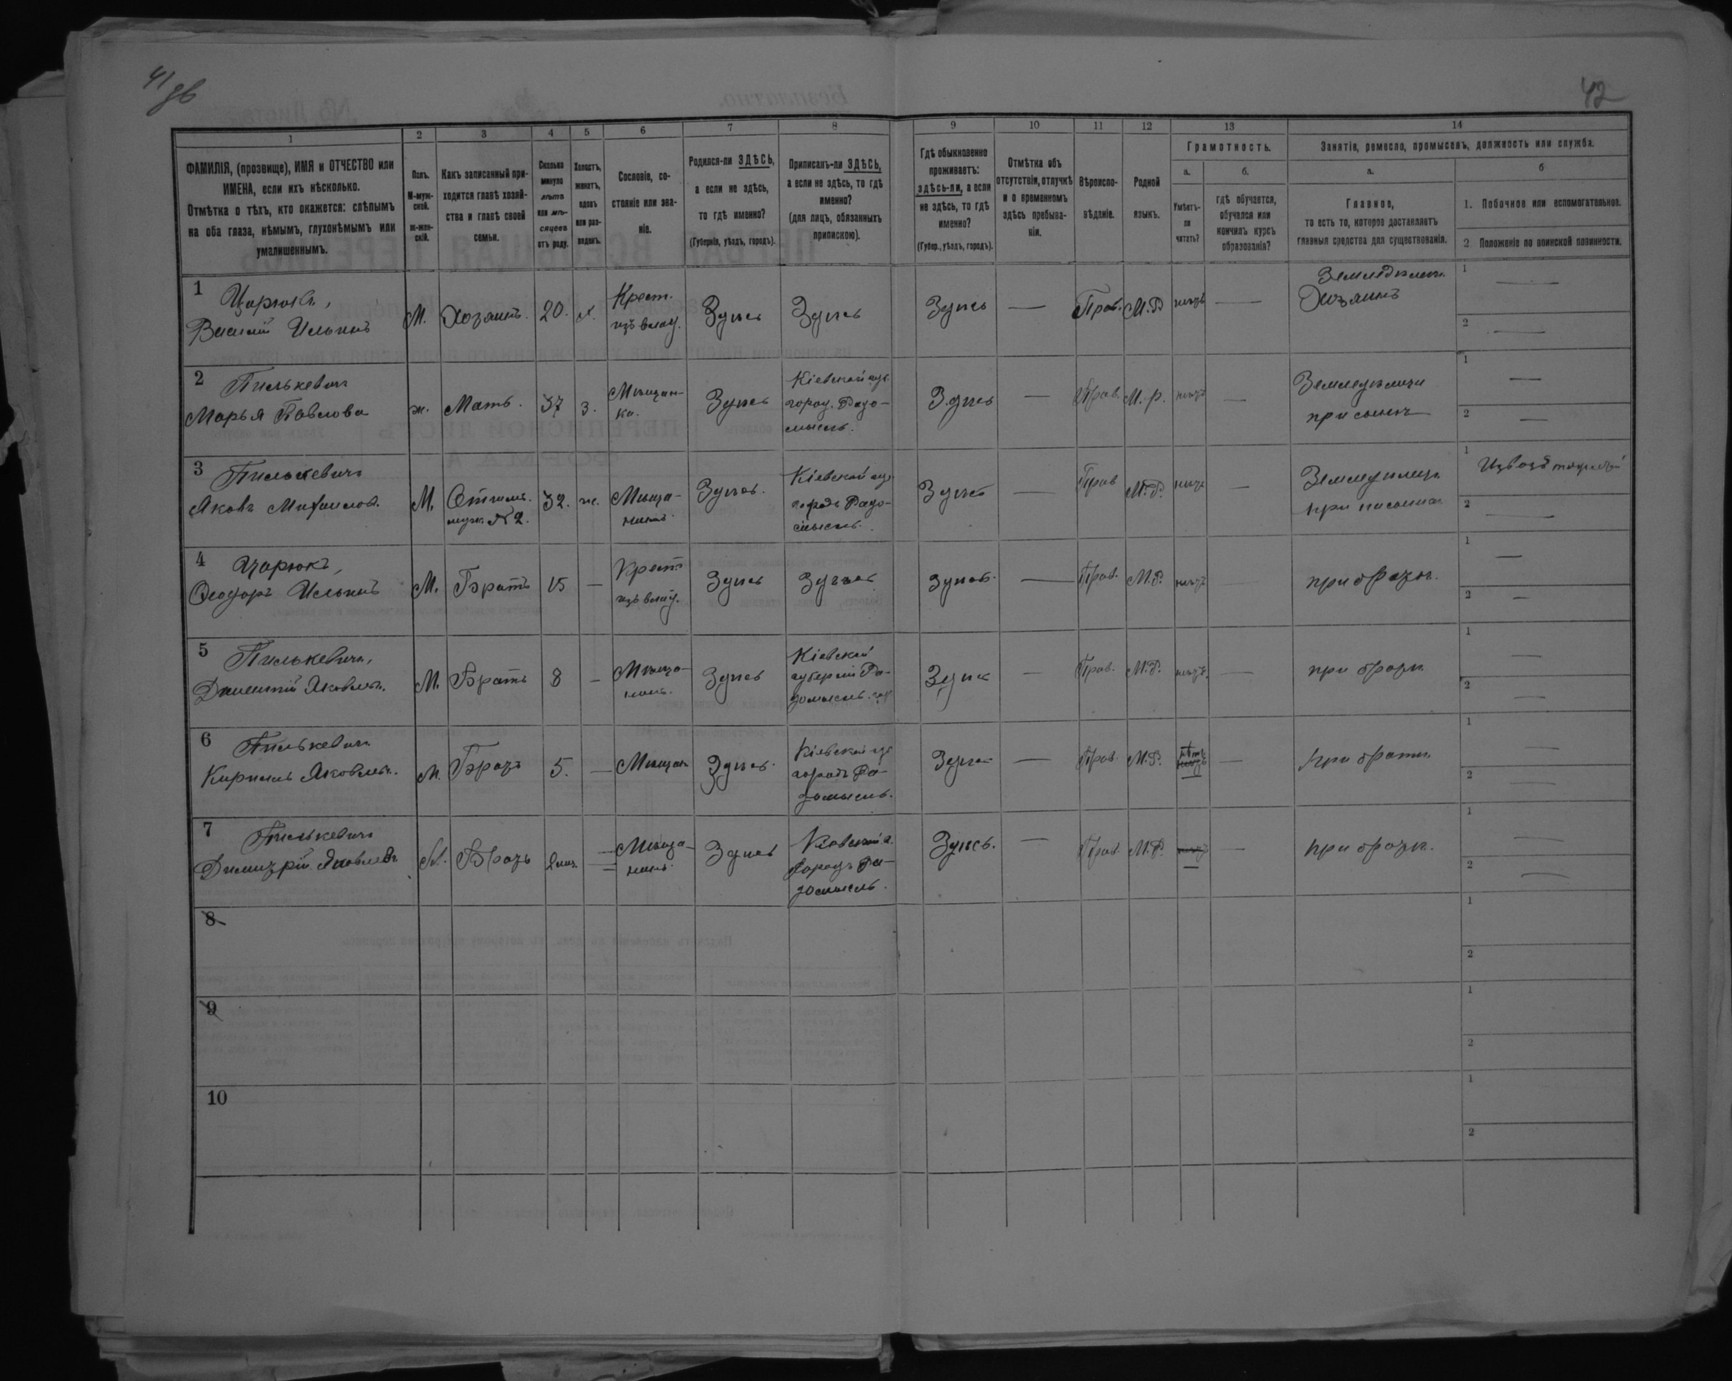 41 об
42
1
2
3
4
5
6
7
8
9
10
11
12
13
14
ФАМИЛІЯ, (прозвище), ИМЯ и ОТЧЕСТВО или
ИМЕНА, если ихъ нѣсколько.
Отмѣтка о тѣхъ, кто окажется: слѣпымъ
на оба глаза, нѣмымъ, глухонѣмымъ или
умалишеннымъ.
Полъ.
М-муж-
ской.
ж-жен-
скій.
Какъ записанный при-
ходится главѣ хозяй-
ства и главѣ своей
семьи.
Сколько
минуло
лѣтъ
или мѣ-
сяцевъ
отъ роду.
Холостъ,
женатъ,
вдовъ
или раз-
веденъ.
Сословіе, со-
стояніе или зва-
ніе.
Родился-ли ЗДѢСЬ,
а если не здѣсь,
то гдѣ именно?
(Губернія, уѣздъ, городъ).
Приписанъ-ли ЗДѢСЬ,
а если не здѣсь, то гдѣ
именно?
(для лицъ, обязанныхъ
припискою).
Гдѣ обыкновенно
проживаетъ:
здѣсь-ли, а если
не здѣсь, то гдѣ
именно?
(Губер., уѣздъ, городъ).
Отмѣтка объ
отсутствіи, отлучкѣ
и о временномъ
здѣсь пребыва-
ніи.
Вѣроиспо-
вѣданіе.
Родной
языкъ.
Грамотность.
а.
Умѣетъ-
ли
читать?
б.
гдѣ обучается,
обучался или
кончилъ курсъ
образованія?
Занятія, ремесло, промыселъ, должность или служба.
а.
Главное,
то есть то, которое доставляетъ
главныя средства для существованія.
б
1. Побочное или вспомогательное.
2. Положеніе по воинской повинности.
1
Царюкъ,
Василій Ильинъ
М.
Хозяинъ.
20.
х.
Крест.
изъ влад.
Здѣсь
Здѣсь
Здѣсь
—
Прав.
М.Р
нѣтъ
—
Земледѣлецъ
Хозяинъ
1 —
2 —
2
Пилькевичъ
Марья Павлова
ж.
Мать.
37
з.
Мѣщан-
ка.
Здѣсь
Кіевской губ.
город. Радо-
мысль.
Здѣсь
—
Прав.
М.р.
нѣтъ
—
Земледѣлица
при сынѣ
1 —
2 —
3
Пилькевичъ
Яковъ Михаиловъ
М.
Отчимъ.
мужъ №2.
32.
ж.
Мѣща-
нинъ.
Здѣсь.
Кіевской губ
городъ Радо-
мысль.
Здѣсь
—
Прав
М.Р.
нѣтъ
—
Земледѣлецъ
при пасынкѣ
1
2 —
4
Царюкъ,
Феодоръ Ильинъ
М.
Братъ
15
—
Крест.
изъ влад.
Здѣсь
Здѣсь
Здѣсь.
—
Прав.
М.Р.
нѣтъ
при братѣ.
1 —
2 —
5
Пилькевичъ,
Яковлевъ.
М.
Братъ
8
—
Мѣща-
нинъ.
Здѣсь
Кіевской
губерніи Ра-
домысль. гор
Здѣсь
—
Прав.
М.Р.
нѣтъ.
—
при братѣ
1 —
2 —
6
Пилькевичъ
Кириллъ Яковлевъ.
М.
Братъ
5.
—
Мѣщан
Здѣсь.
Кіевской губ
городъ Ра-
домысль.
Здѣсь
—
Прав.
М.Р.
нѣтъ
—
при братѣ.
1 —
2 —
7
Пилькевичъ
Димитрій Яковлевъ
М.
Братъ
—
Мѣща-
нинъ.
Здѣсь
Кіевской г.
городъ Ра-
домысль.
Здѣсь.
—
Прав
М.Р.
—
при братѣ.
1 —
2 —
8
1
2
9
1
2
10
1
2